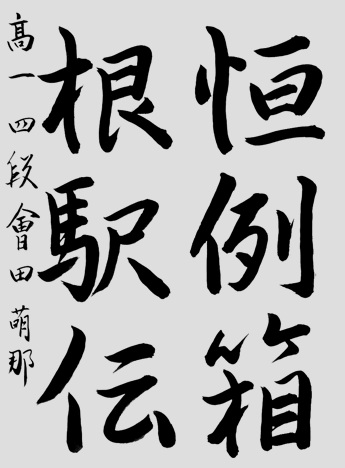 恒例箱
根駅伝
高一四段會田萌那